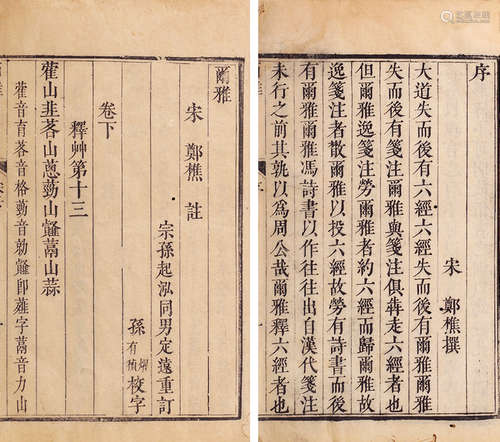 序
宋 鄭樵撰
大道失而後有六經六經失而後有爾雅爾雅
失而後有箋注爾雅與箋注俱犇走六經者也
但爾雅逸箋注勞爾雅者約六經而歸爾雅故
逸箋注者散爾雅以投六經故勞有詩書而後
有爾雅爾雅馮詩書以作往往出自漢代箋注
未行之前其孰以為周公哉爾雅釋六經者也
爾雅
宋 鄭樵 註
宗孫起泓同男定遠重訂
孫 有燿 有楨 校字
卷下
釋艸第十三
藿山韭茖山蔥葝山䪥蒚山蒜
藿音育茖音格葝音勍䪥即薤字蒚音力山